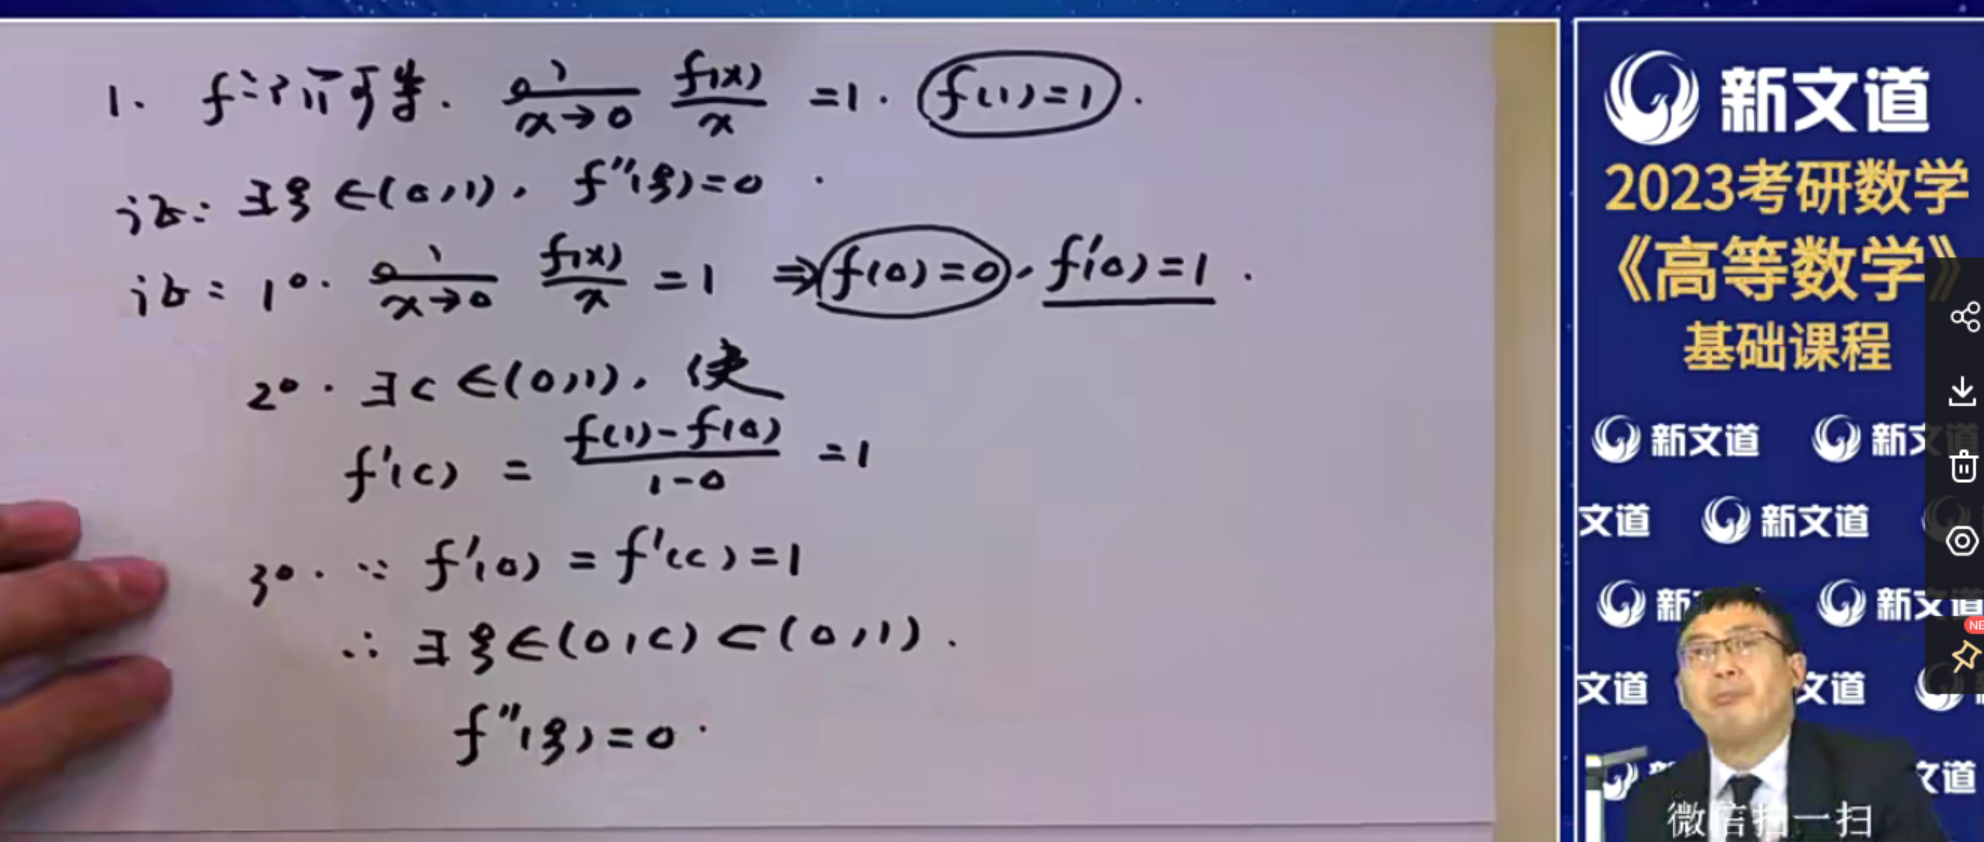 1. f二阶可导. lim x→0 f(x)/x =1. f(1)=1.
证: ∃ξ∈(0,1), f″(ξ)=0.
证: 1°. lim x→0 f(x)/x =1 ⇒ f(0)=0, f′(0)=1.
2°. ∃c∈(0,1), 使
f′(c) = f(1)-f(0)/1-0 =1
3°. ∵ f′(0) = f′(c) =1
∴ ∃ξ∈(0,c)⊂(0,1).
f″(ξ)=0.
新文道
2023考研数学
《高等数学》
基础课程
新文道 新文
文道 新文道
新 新文道
文道 文道
新 文道
NE
微信扫一扫